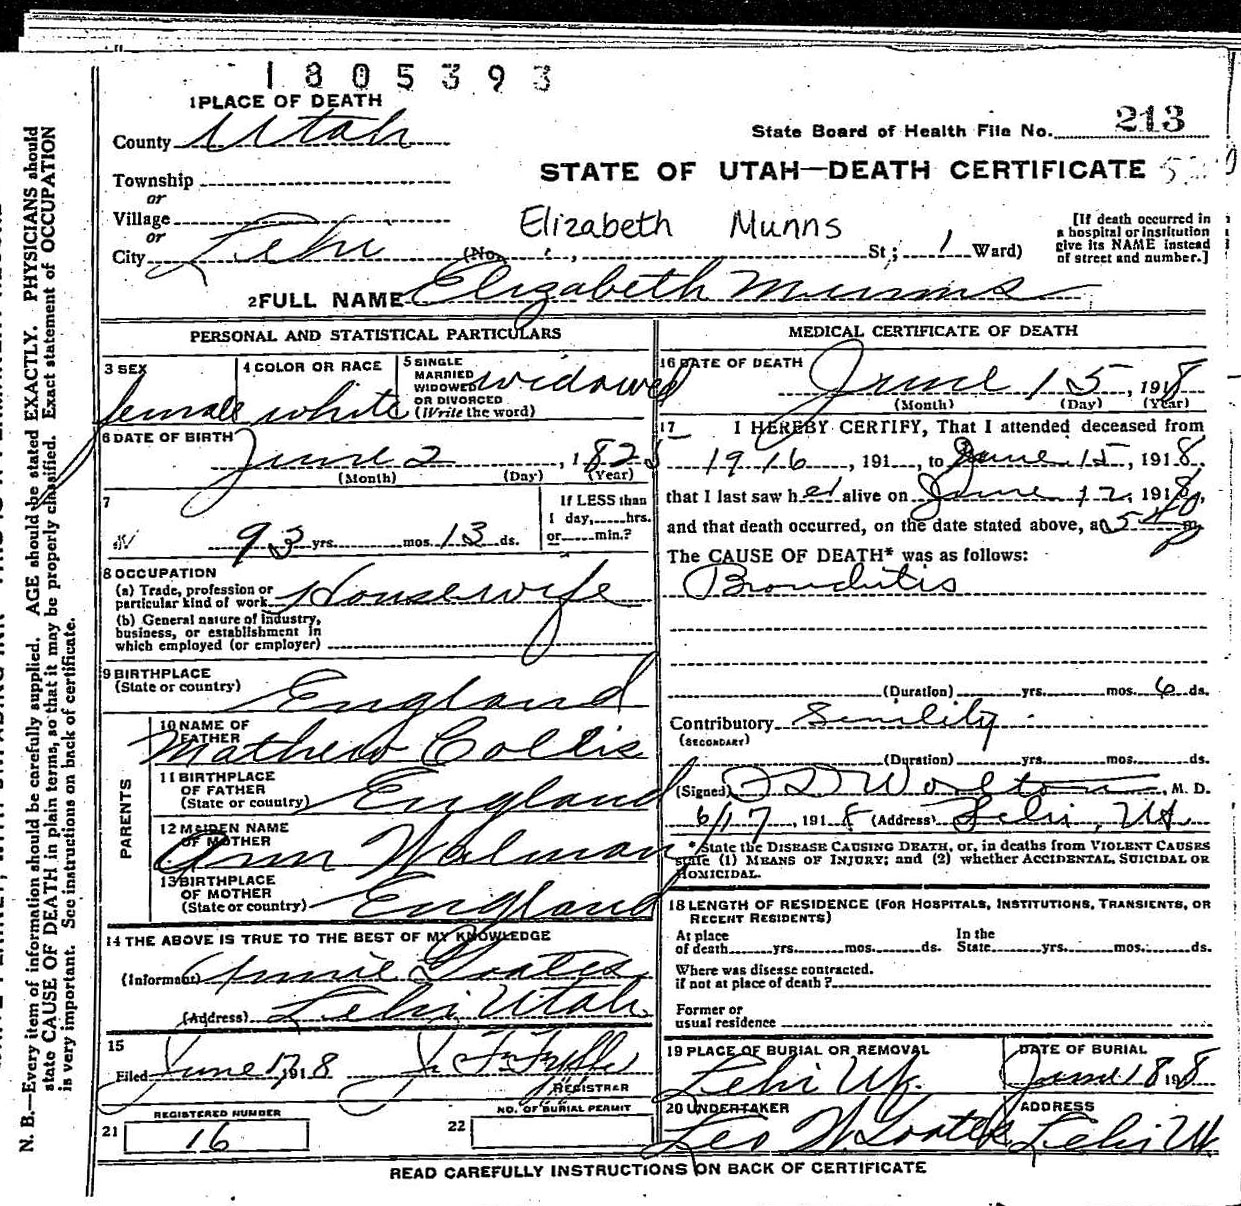 1805393
1 PLACE OF DEATH
County Utah
State Board of Health File No. 213
STATE OF UTAH—DEATH CERTIFICATE
Township
or
Village
or
City Lehi (No. , St; 1 Ward)
Elizabeth Munns
[If death occurred in
a hospital or institution
give its NAME instead
of street and number.]
2 FULL NAME Elizabeth Munns
PERSONAL AND STATISTICAL PARTICULARS
3 SEX
female
4 COLOR OR RACE
white
5 SINGLE
MARRIED
WIDOWED
OR DIVORCED
(Write the word)
widowed
6 DATE OF BIRTH
June 2, 1825
(Month) (Day) (Year)
7
93 yrs. mos. 13 ds.
If LESS than
1 day, hrs.
or min.?
8 OCCUPATION
(a) Trade, profession or
particular kind of work Housewife
(b) General nature of industry,
business, or establishment in
which employed (or employer)
9 BIRTHPLACE
(State or country) England
PARENTS
10 NAME OF
FATHER
Mathew Collis
11 BIRTHPLACE
OF FATHER
(State or country) England
12 MAIDEN NAME
OF MOTHER
Ann Walman
13 BIRTHPLACE
OF MOTHER
(State or country) England
14 THE ABOVE IS TRUE TO THE BEST OF MY KNOWLEDGE
(Informant) Annie Goates
(Address) Lehi Utah
15
Filed June 17, 1918
REGISTRAR
REGISTERED NUMBER
21 16
NO. OF BURIAL PERMIT
22
MEDICAL CERTIFICATE OF DEATH
16 DATE OF DEATH
June 15, 1918
(Month) (Day) (Year)
17 I HEREBY CERTIFY, That I attended deceased from
1916, 191 , to June 15, 1918,
that I last saw her alive on June 12, 1918,
and that death occurred, on the date stated above, at 5 m
The CAUSE OF DEATH* was as follows:
Bronchitis
(Duration) yrs. mos. 6 ds.
Contributory Senility
(SECONDARY)
(Duration) yrs. mos. ds.
(Signed) , M. D.
6/17, 1918 (Address) Lehi, Ut
*State the DISEASE CAUSING DEATH, or, in deaths from VIOLENT CAUSES
state (1) MEANS OF INJURY; and (2) whether ACCIDENTAL, SUICIDAL OR
HOMICIDAL.
18 LENGTH OF RESIDENCE (FOR HOSPITALS, INSTITUTIONS, TRANSIENTS, OR
RECENT RESIDENTS)
At place In the
of death yrs. mos. ds. State yrs. mos. ds.
Where was disease contracted.
if not at place of death?
Former or
usual residence
19 PLACE OF BURIAL OR REMOVAL
Lehi Ut.
DATE OF BURIAL
June 18 1918
20 UNDERTAKER
Leo W Goates
ADDRESS
Lehi Ut
READ CAREFULLY INSTRUCTIONS ON BACK OF CERTIFICATE
N. B.—Every item of information should be carefully supplied. AGE should be stated EXACTLY. PHYSICIANS should
state CAUSE OF DEATH in plain terms, so that it may be properly classified. Exact statement of OCCUPATION
is very important. See instructions on back of certificate.